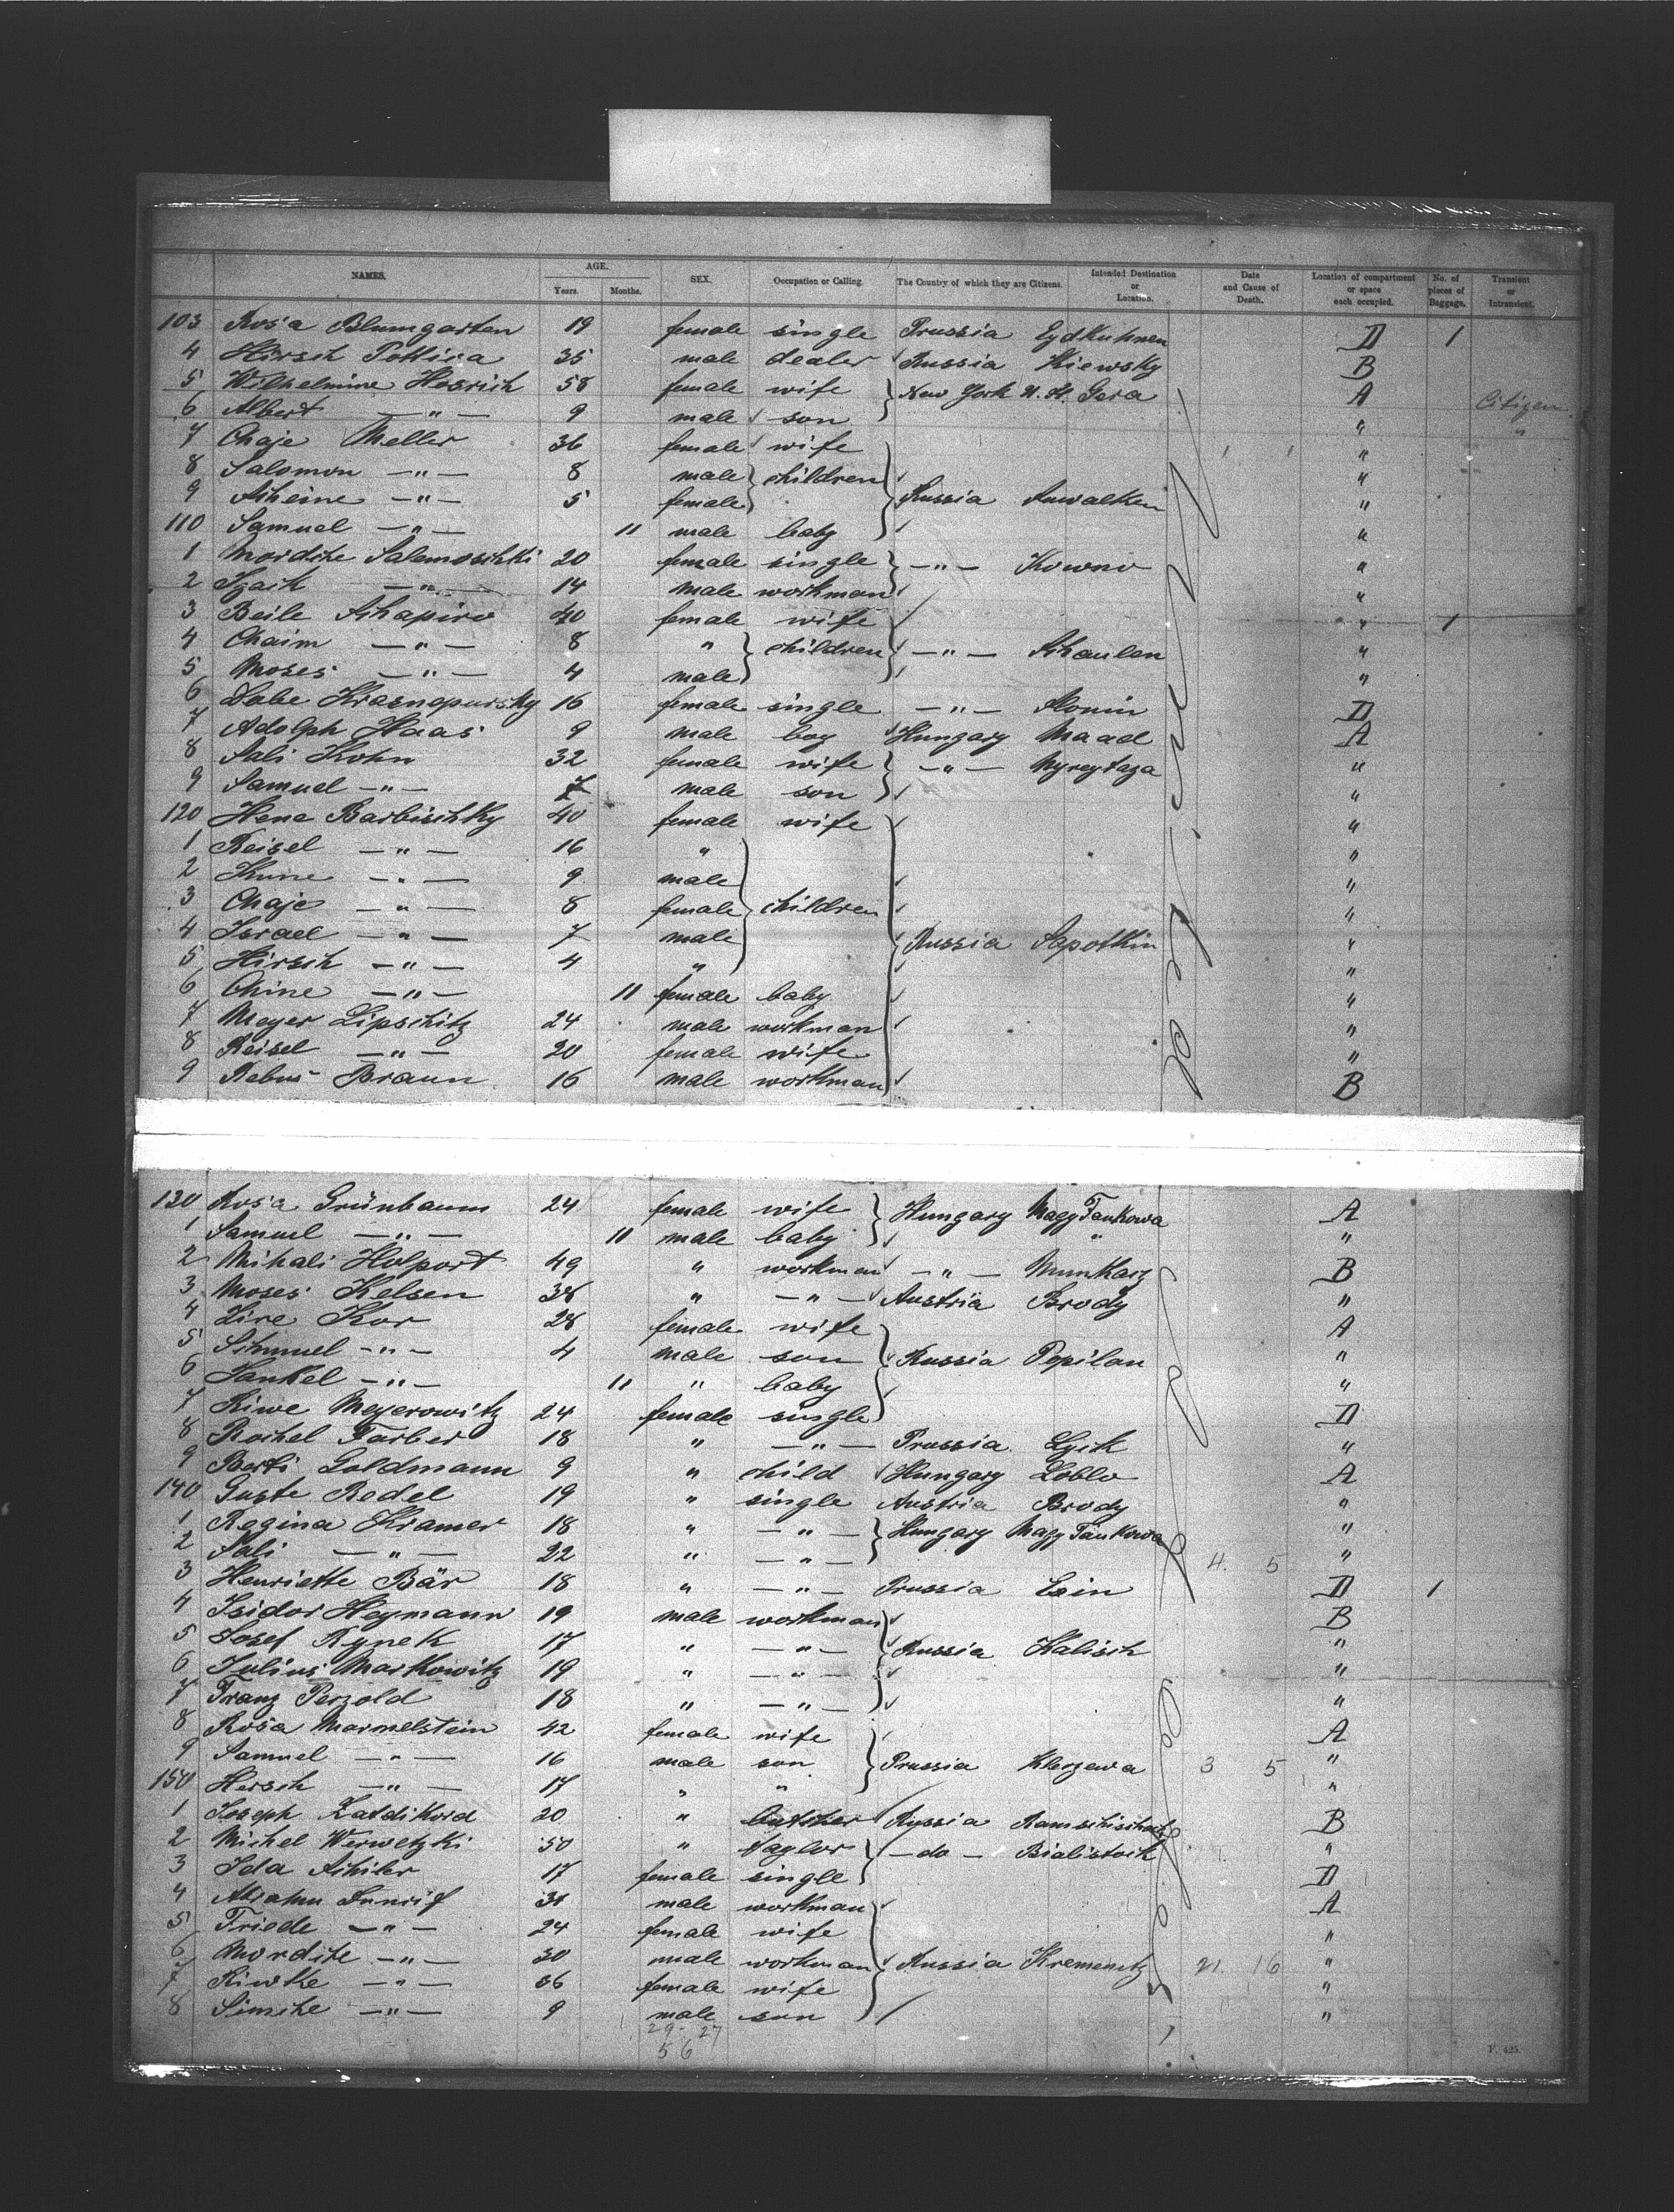 NAMES. AGE. Years. Months. SEX. Occupation or Calling. The Country of which they are Citizens. Intended Destination or Location. Date and Cause of Death. Location of compartment or space each occupied. No. of pieces of Baggage. Transient or Intransient.
103 Rosa Blumgarten 19 female single Prussia Eydkuhnen D 1
4 Hirsch 35 male dealer Russia Kiewsky B
5 Wilhelmine 58 female wife New York Gera A Citizen
6 Albert —"— 9 male son " "
7 Chaje Meller 36 female wife "
8 Salomon —"— 8 male children "
9 Scheine —"— 5 female Russia Suwalken "
110 Samuel —"— 11 male baby "
1 Mordche Salamoschki 20 female single —"— Kowno "
2 Izaik —"— 14 male workman "
3 Beile Schapiro 40 female wife " 1
4 Chaim —"— 8 " children —"— Schaulen "
5 Moses —"— 4 male "
6 Labe 16 female single —"— Slonin D
7 Adolph Haas 9 male boy Hungary Maad A
8 Sali Kohn 32 female wife —"— "
9 Samuel —"— male son "
120 Hene Barbischky 40 female wife "
1 Reisel —"— 16 " "
2 —"— 9 male "
3 Chaje —"— 8 female children "
4 Israel —"— 7 male Russia Sapotkin "
5 Hirsch —"— 4 " "
6 Chine —"— 11 female baby "
7 Meyer Lipschitz 24 male workman "
8 Reisel —"— 20 female wife "
9 Braun 16 male workman B
130 Rosa Grünbaum 24 female wife Hungary Nagy Tankowa A
1 Samuel —"— 11 male baby " "
2 Mihali Holport 49 " workman —"— Munkacz B
3 Moses Kelsen 38 " —"— Austria Brody "
4 Lire Kor 28 female wife A
5 Schmuel —"— 4 male son Russia Popilan "
6 Jankel —"— 11 " baby "
7 Riwe Meyerowitz 24 female single D
8 Rochel Farber 18 " —"— Prussia Lyck "
9 Berti Goldmann 9 " child Hungary Loblo A
140 Guste Redel 19 " single Austria Brody "
1 Regina Kramer 18 " —"— Hungary Nagy Tankowa "
2 Sali —"— 22 " —"— 4. 5 "
3 Henriette Bär 18 " —"— Prussia Exin D 1
4 Isidor Heymann 19 male workman B
5 Josef Rynek 17 " —"— Russia Kalisch "
6 Julius Markowitz 19 " —"— "
7 Franz Perzold 18 " —"— "
8 Rosa Marmelstein 42 female wife A
9 Samuel —"— 16 male son Prussia 3 5 "
150 Hersch —"— 17 " " "
1 Joseph 20 " butcher Russia B
2 Michel Werwetzki 50 " taylor —do— Bialistock "
3 Ida 17 female single D
4 male workman A
5 Friede —"— 24 female wife "
6 Mordche —"— 30 male workman Russia Kremenitz 21. 16 "
7 Riwke —"— 36 female wife "
8 Simche —"— 9 male son "
29-27
56
F. 525.